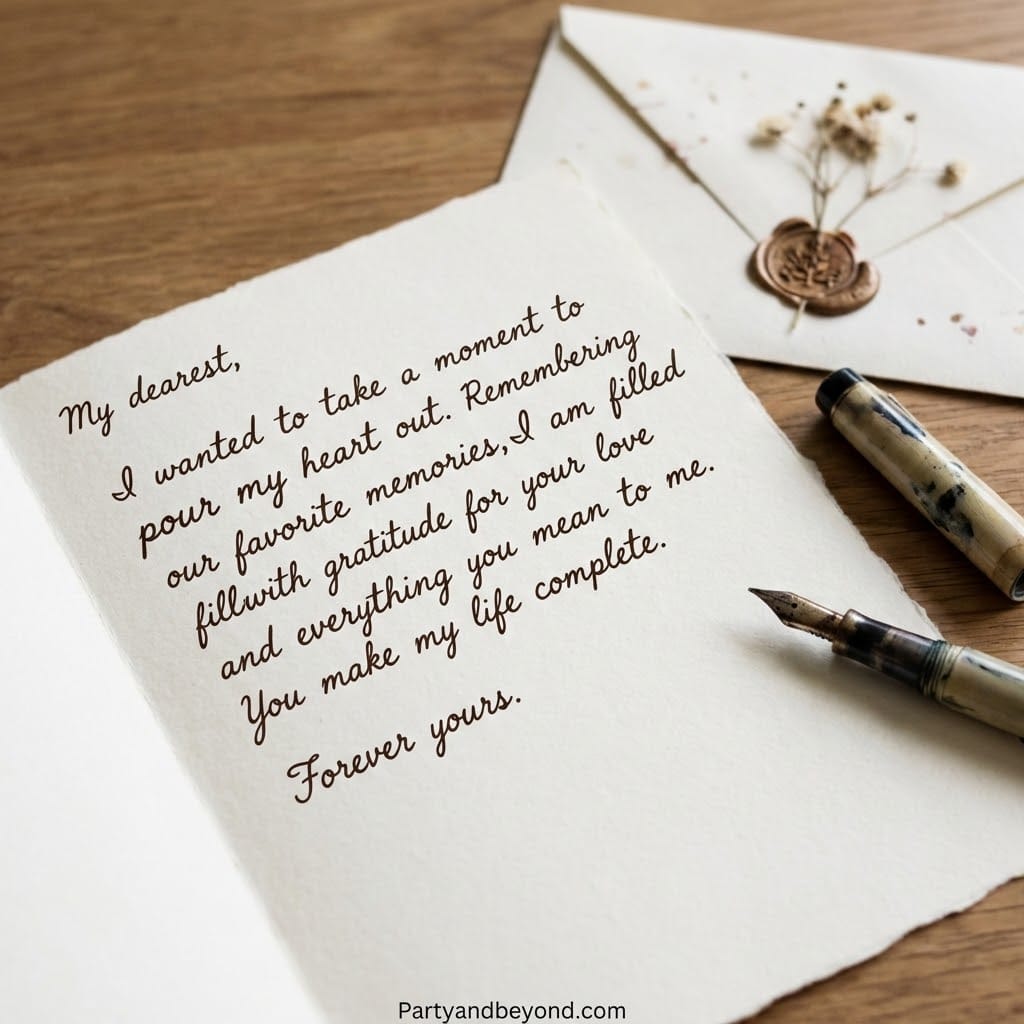 My dearest,
I wanted to take a moment to
pour my heart out. Remembering
our favorite memories,I am filled
fillwith gratitude for your love
and everything you mean to me.
You make my life complete.
Forever yours.
Partyandbeyond.com